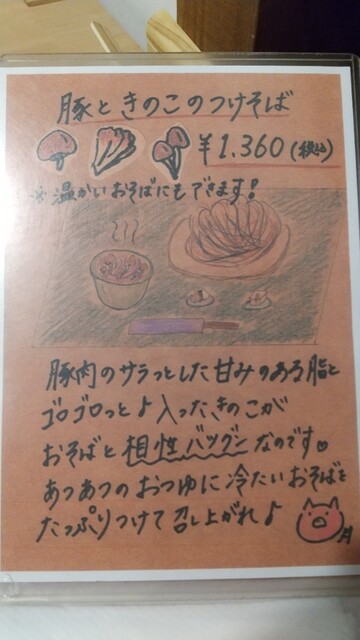 豚ときのこのつけそば
¥1.360(税込)
※温かいおそばにもできます!
豚肉のサラっとした甘みのある脂と
ゴロゴロっと♪入ったきのこが
おそばと相性バツグンなのです♡
あつあつのおつゆに冷たいおそばを
たっぷりつけて召し上がれ♪
月